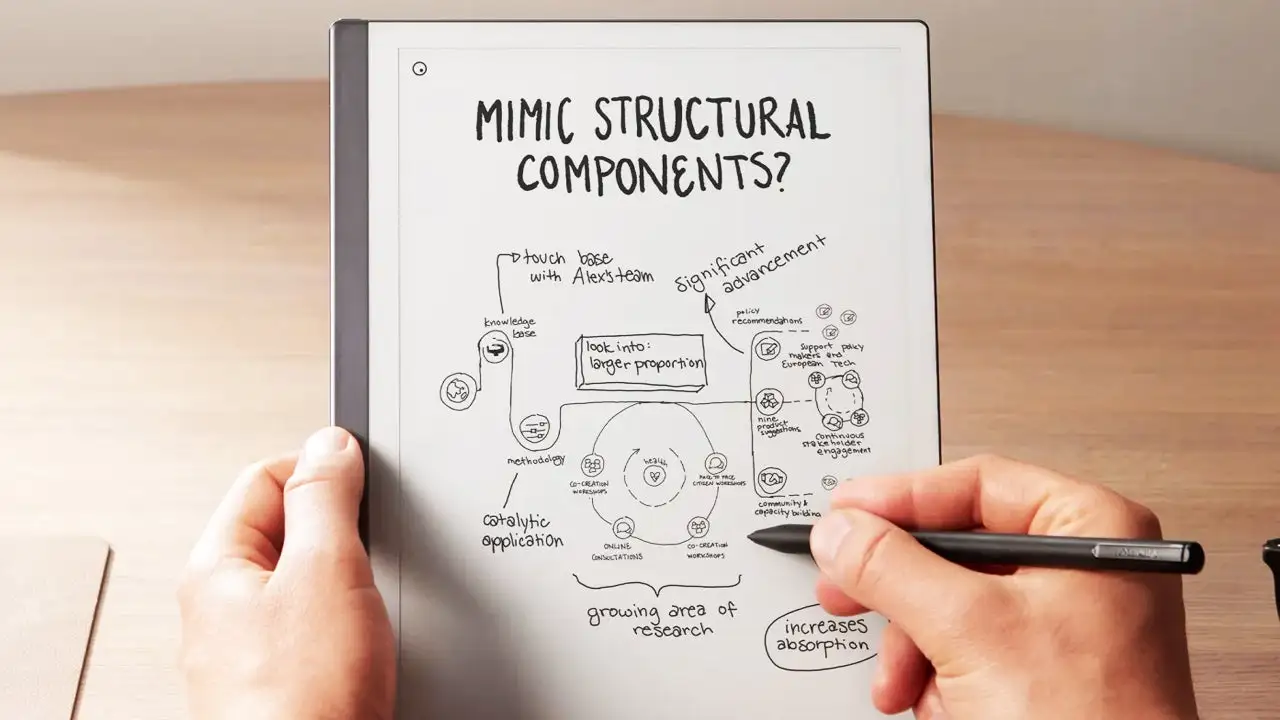 MIMIC STRUCTURAL
COMPONENTS?
touch base
with Alex's team
significant
advancement
knowledge
base
look into:
larger proportion
policy
recommendations
Support policy
makers and
European Tech
nine
product
suggestions
continuous
stakeholder
engagement
methodology
health
CO-CREATION
WORKSHOPS
FACE TO FACE
CITIZEN WORKSHOPS
community &
capacity building
catalytic
application
ONLINE
CONSULTATIONS
CO-CREATION
WORKSHOPS
growing area of
research
increases
absorption